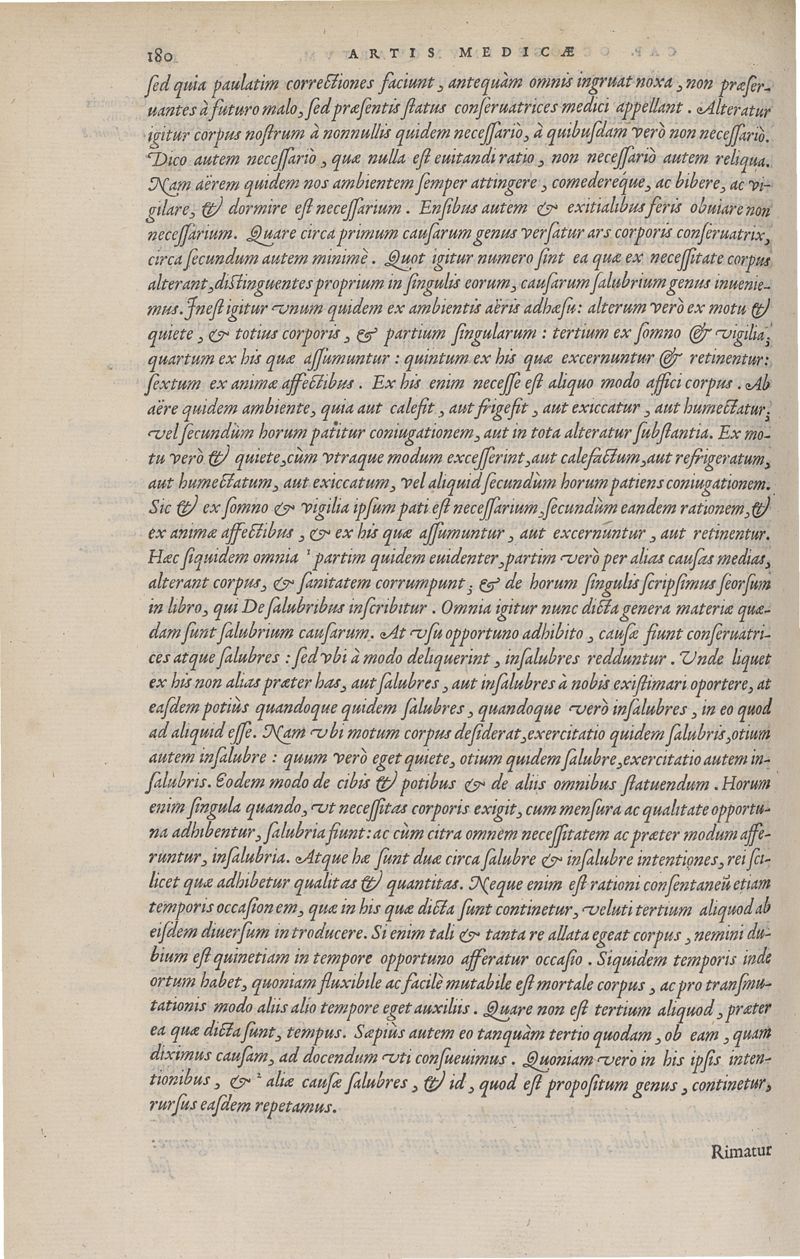 180 ARTIS MEDICÆ
ſed quia paulatim correctiones faciunt, antequàm omnis ingruat noxa, non præſer-
uantes à futuro malo, ſed præſentis ſtatus conſeruatrices medici appellant. Alteratur
igitur corpus noſtrum à nonnullis quidem neceſſariò, à quibuſdam verò non neceſſariò.
Dico autem neceſſariò, quæ nulla eſt euitandi ratio, non neceſſariò autem reliqua.
Nam aërem quidem nos ambientem ſemper attingere, comedereq́ue, ac bibere, ac vi-
gilare, & dormire eſt neceſſarium. Enſibus autem & exitialibus feris obuiare non
neceſſarium. Quare circa primum cauſarum genus verſatur ars corporis conſeruatrix,
circa ſecundum autem minimè. Quot igitur numero ſint ea quæ ex neceſſitate corpus
alterant, diſtinguentes proprium in ſingulis eorum, cauſarum ſalubrium genus inuenie-
mus. Ineſt igitur vnum quidem ex ambientis aëris adhæſu: alterum verò ex motu &
quiete, & totius corporis, & partium ſingularum: tertium ex ſomno & vigilia;
quartum ex his quæ aſſumuntur: quintum ex his quæ excernuntur & retinentur:
ſextum ex animæ affectibus. Ex his enim neceſſe eſt aliquo modo affici corpus. Ab
aëre quidem ambiente, quia aut calefit, aut frigefit, aut exiccatur, aut humectatur;
vel ſecundùm horum patitur coniugationem, aut in tota alteratur ſubſtantia. Ex mo-
tu verò & quiete, cùm vtraque modum exceſſerint, aut calefactum, aut refrigeratum,
aut humectatum, aut exiccatum, vel aliquid ſecundùm horum patiens coniugationem.
Sic & ex ſomno & vigilia ipſum pati eſt neceſſarium, ſecundùm eandem rationem, &
ex animæ affectibus, & ex his quæ aſſumuntur, aut excernuntur, aut retinentur.
Hæc ſiquidem omnia ¹ partim quidem euidenter, partim verò per alias cauſas medias,
alterant corpus, & ſanitatem corrumpunt; & de horum ſingulis ſcripſimus ſeorſum
in libro, qui De ſalubribus inſcribitur. Omnia igitur nunc dicta genera materiæ quæ-
dam ſunt ſalubrium cauſarum. At vſu opportuno adhibito, cauſæ fiunt conſeruatri-
ces atque ſalubres: ſed vbi à modo deliquerint, inſalubres redduntur. Vnde liquet
ex his non alias præter has, aut ſalubres, aut inſalubres à nobis exiſtimari oportere, at
eaſdem potiùs quandoque quidem ſalubres, quandoque verò inſalubres, in eo quod
ad aliquid eſſe. Nam vbi motum corpus deſiderat, exercitatio quidem ſalubris, otium
autem inſalubre: quum verò eget quiete, otium quidem ſalubre, exercitatio autem in-
ſalubris. Eodem modo de cibis & potibus & de aliis omnibus ſtatuendum. Horum
enim ſingula quando, vt neceſſitas corporis exigit, cum menſura ac qualitate opportu-
na adhibentur, ſalubria fiunt: ac cùm citra omnem neceſſitatem ac præter modum affe-
runtur, inſalubria. Atque hæ ſunt duæ circa ſalubre & inſalubre intentiones, rei ſci-
licet quæ adhibetur qualitas & quantitas. Neque enim eſt rationi conſentaneũ etiam
temporis occaſionem, quæ in his quæ dicta ſunt continetur, veluti tertium aliquod ab
eiſdem diuerſum introducere. Si enim tali & tanta re allata egeat corpus, nemini du-
bium eſt quinetiam in tempore opportuno afferatur occaſio. Siquidem temporis inde
ortum habet, quoniam fluxibile ac facilè mutabile eſt mortale corpus, ac pro tranſmu-
tationis modo aliis alio tempore eget auxiliis. Quare non eſt tertium aliquod, præter
ea quæ dicta ſunt, tempus. Sæpiùs autem eo tanquàm tertio quodam, ob eam, quam
diximus cauſam, ad docendum vti conſueuimus. Quoniam verò in his ipſis inten-
tionibus, & ² aliæ cauſæ ſalubres, & id, quod eſt propoſitum genus, continetur,
rurſus eaſdem repetamus.
Rimatur